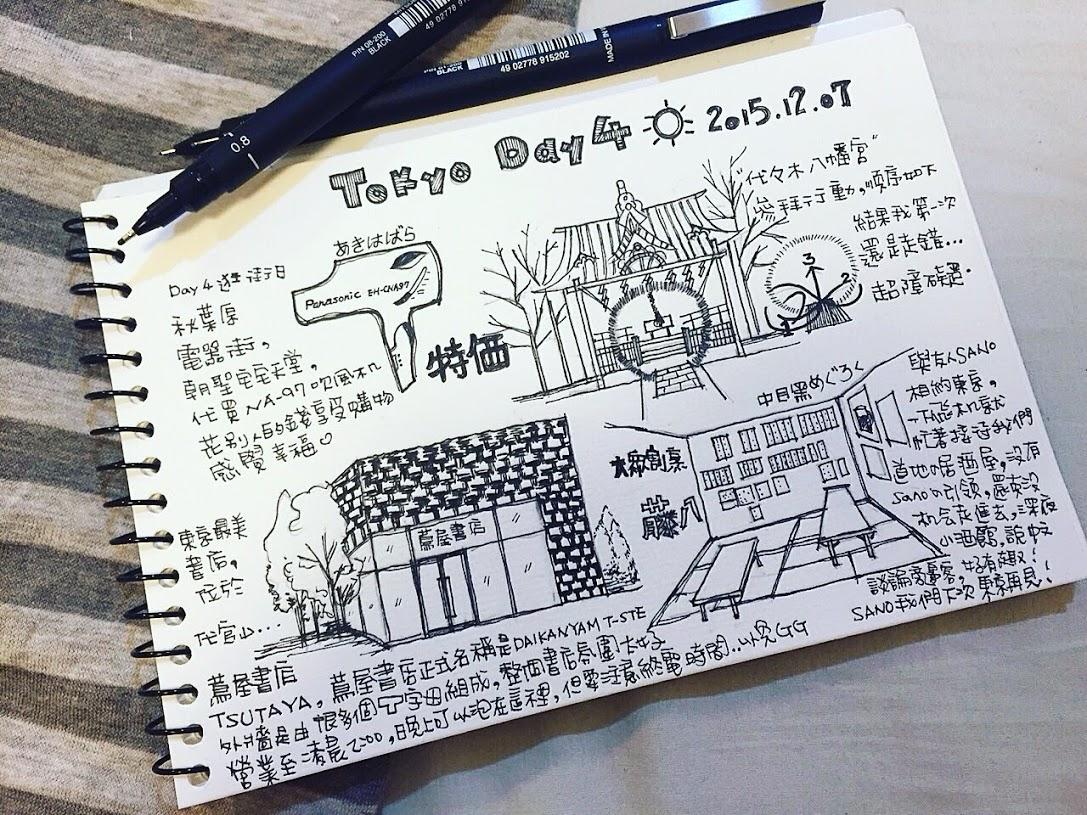 PIN 08-200
BLACK
49 02778
0.8
PIN 08-200
BLACK
49 02778 915202
MADE IN
Tokyo Day 4 2015.12.07
あきはばら
Panasonic EH-CNA97
特価
Day 4 逛街日
秋葉原
電器街,
朝聖宅宅天堂,
代買NA-97吹風机
花別人的錢享受購物
感覺幸福
"代々木八幡宮"
参拜行動,順序如下
結果我第一次
還是走錯...
超障礙。
3
2
1
中目黑めぐろく
大衆割烹
藤八
與友人SANO
相約東京,
一下飛机就
忙著接待我們
道地の居酒屋,沒有
sanoの引領,還真沒
机会走進去,深夜
小酒館,說中文
談論喜憂哀,好有趣!
SANO我們下次東京再見!
東京最美
書店,
位於
代官山...
蔦屋書店
蔦屋書店
TSUTAYA,蔦屋書店正式名稱是DAIKANYAM T-STE
外牆是由很多個T字母組成,整個書店氛圍太好
營業至凌晨2:00,晚上可以泡在這裡,但要注意終電時間..以免GG